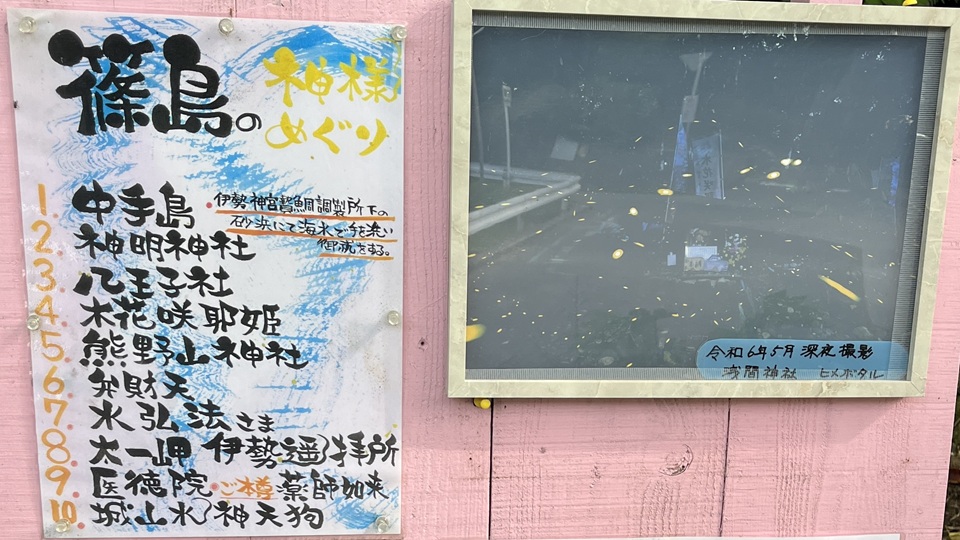 篠島の
神様
めぐり
1. 中手島
伊勢神宮贄鯛調製所下の
砂浜にて海水で手を洗い
御祓をする。
2. 神明神社
3. 八王子社
4. 木花咲耶姫
5. 熊野山神社
6. 弁財天
7. 水弘法さま
8. 太一岬 伊勢遥拝所
9. 医徳院 ご樽 薬師如来
10. 城山水神天狗
令和6年5月 深夜撮影
浅間神社 ヒメボタル